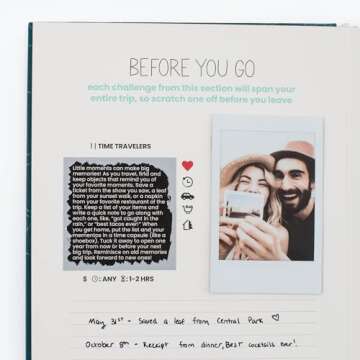 BEFORE YOU GO
each challenge from this section will span your
entire trip, so scratch one off before you leave
1 | TIME TRAVELERS
Little moments can make big
memories! As you travel, find and
keep objects that remind you of
your favorite moments. Save a
ticket from the show you saw, a leaf
from your sunset walk, or a napkin
from your favorite restaurant of the
trip. Keep a list of your items and
write a quick note to go along with
each one, like, "got caught in the
rain," or "best tacos ever!" When
you get home, put the list and your
mementos in a time capsule (like a
shoebox). Tuck it away to open one
year from now or before your next
big trip. Reminisce on old memories
and look forward to new ones!
$ : ANY : 1-2 HRS
May 31st - Saved a leaf from Central Park
October 8th - Receipt from dinner, Best cocktails ever!